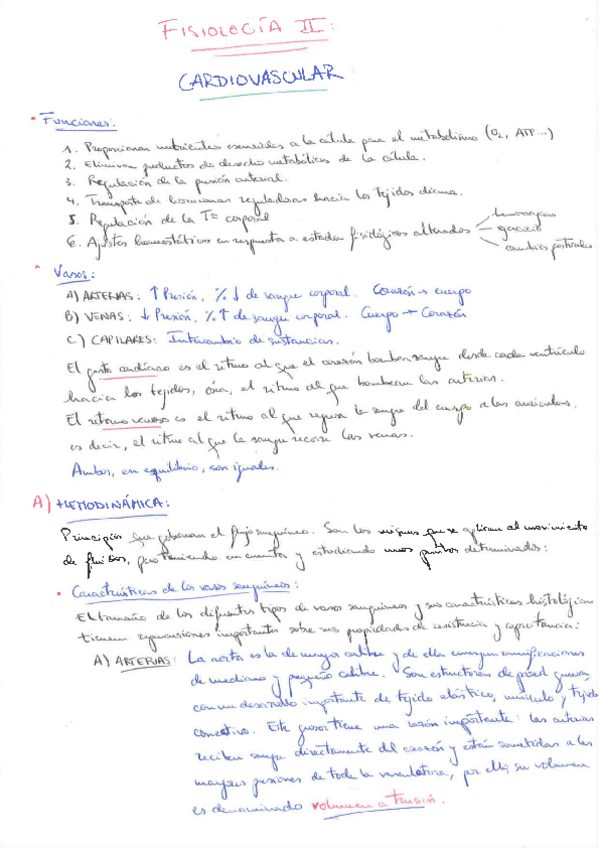 FISIOLOGÍA II:
CARDIOVASCULAR
• Funciones:
1. Proporcionar nutrientes esenciales a la célula para el metabolismo (O₂, ATP...)
2. Eliminar productos de desecho metabólicos de la célula.
3. Regulación de la presión arterial.
4. Transporte de hormonas reguladoras hacia los tejidos diana.
5. Regulación de la Tª corporal
6. Ajustes homeostáticos en respuesta a estados fisiológicos alterados
hemorragias
ejercicio
cambios posturales
• Vasos:
A) ARTERIAS: ↑ Presión, % ↓ de sangre corporal. Corazón → cuerpo
B) VENAS: ↓ Presión, % ↑ de sangre corporal. Cuerpo → Corazón
C) CAPILARES: Intercambio de sustancias.
El gasto cardíaco es el ritmo al que el corazón bombea sangre desde cada ventrículo
hacia los tejidos, o sea, el ritmo al que bombean las arterias.
El retorno venoso es el ritmo al que regresa la sangre del cuerpo a las aurículas,
es decir, el ritmo al que la sangre recorre las venas.
Ambos, en equilibrio, son iguales.
A) HEMODINÁMICA:
Principios que gobiernan el flujo sanguíneo. Son los mismos que se aplican al movimiento
de fluidos, pero teniendo en cuenta y estudiando unos puntos determinados:
• Características de los vasos sanguíneos:
El tamaño de los diferentes tipos de vasos sanguíneos y sus características histológicas
tienen repercusiones importantes sobre sus propiedades de resistencia y capacitancia:
A) ARTERIAS: La aorta es la de mayor calibre y de ella emergen ramificaciones
de mediano y pequeño calibre. Son estructuras de pared gruesa,
con un desarrollo importante de tejido elástico, músculo y tejido
conectivo. Este grosor tiene una razón importante: las arterias
reciben sangre directamente del corazón y están sometidas a las
mayores presiones de toda la vasculatura, por ello, su volumen
es denominado volumen a tensión.